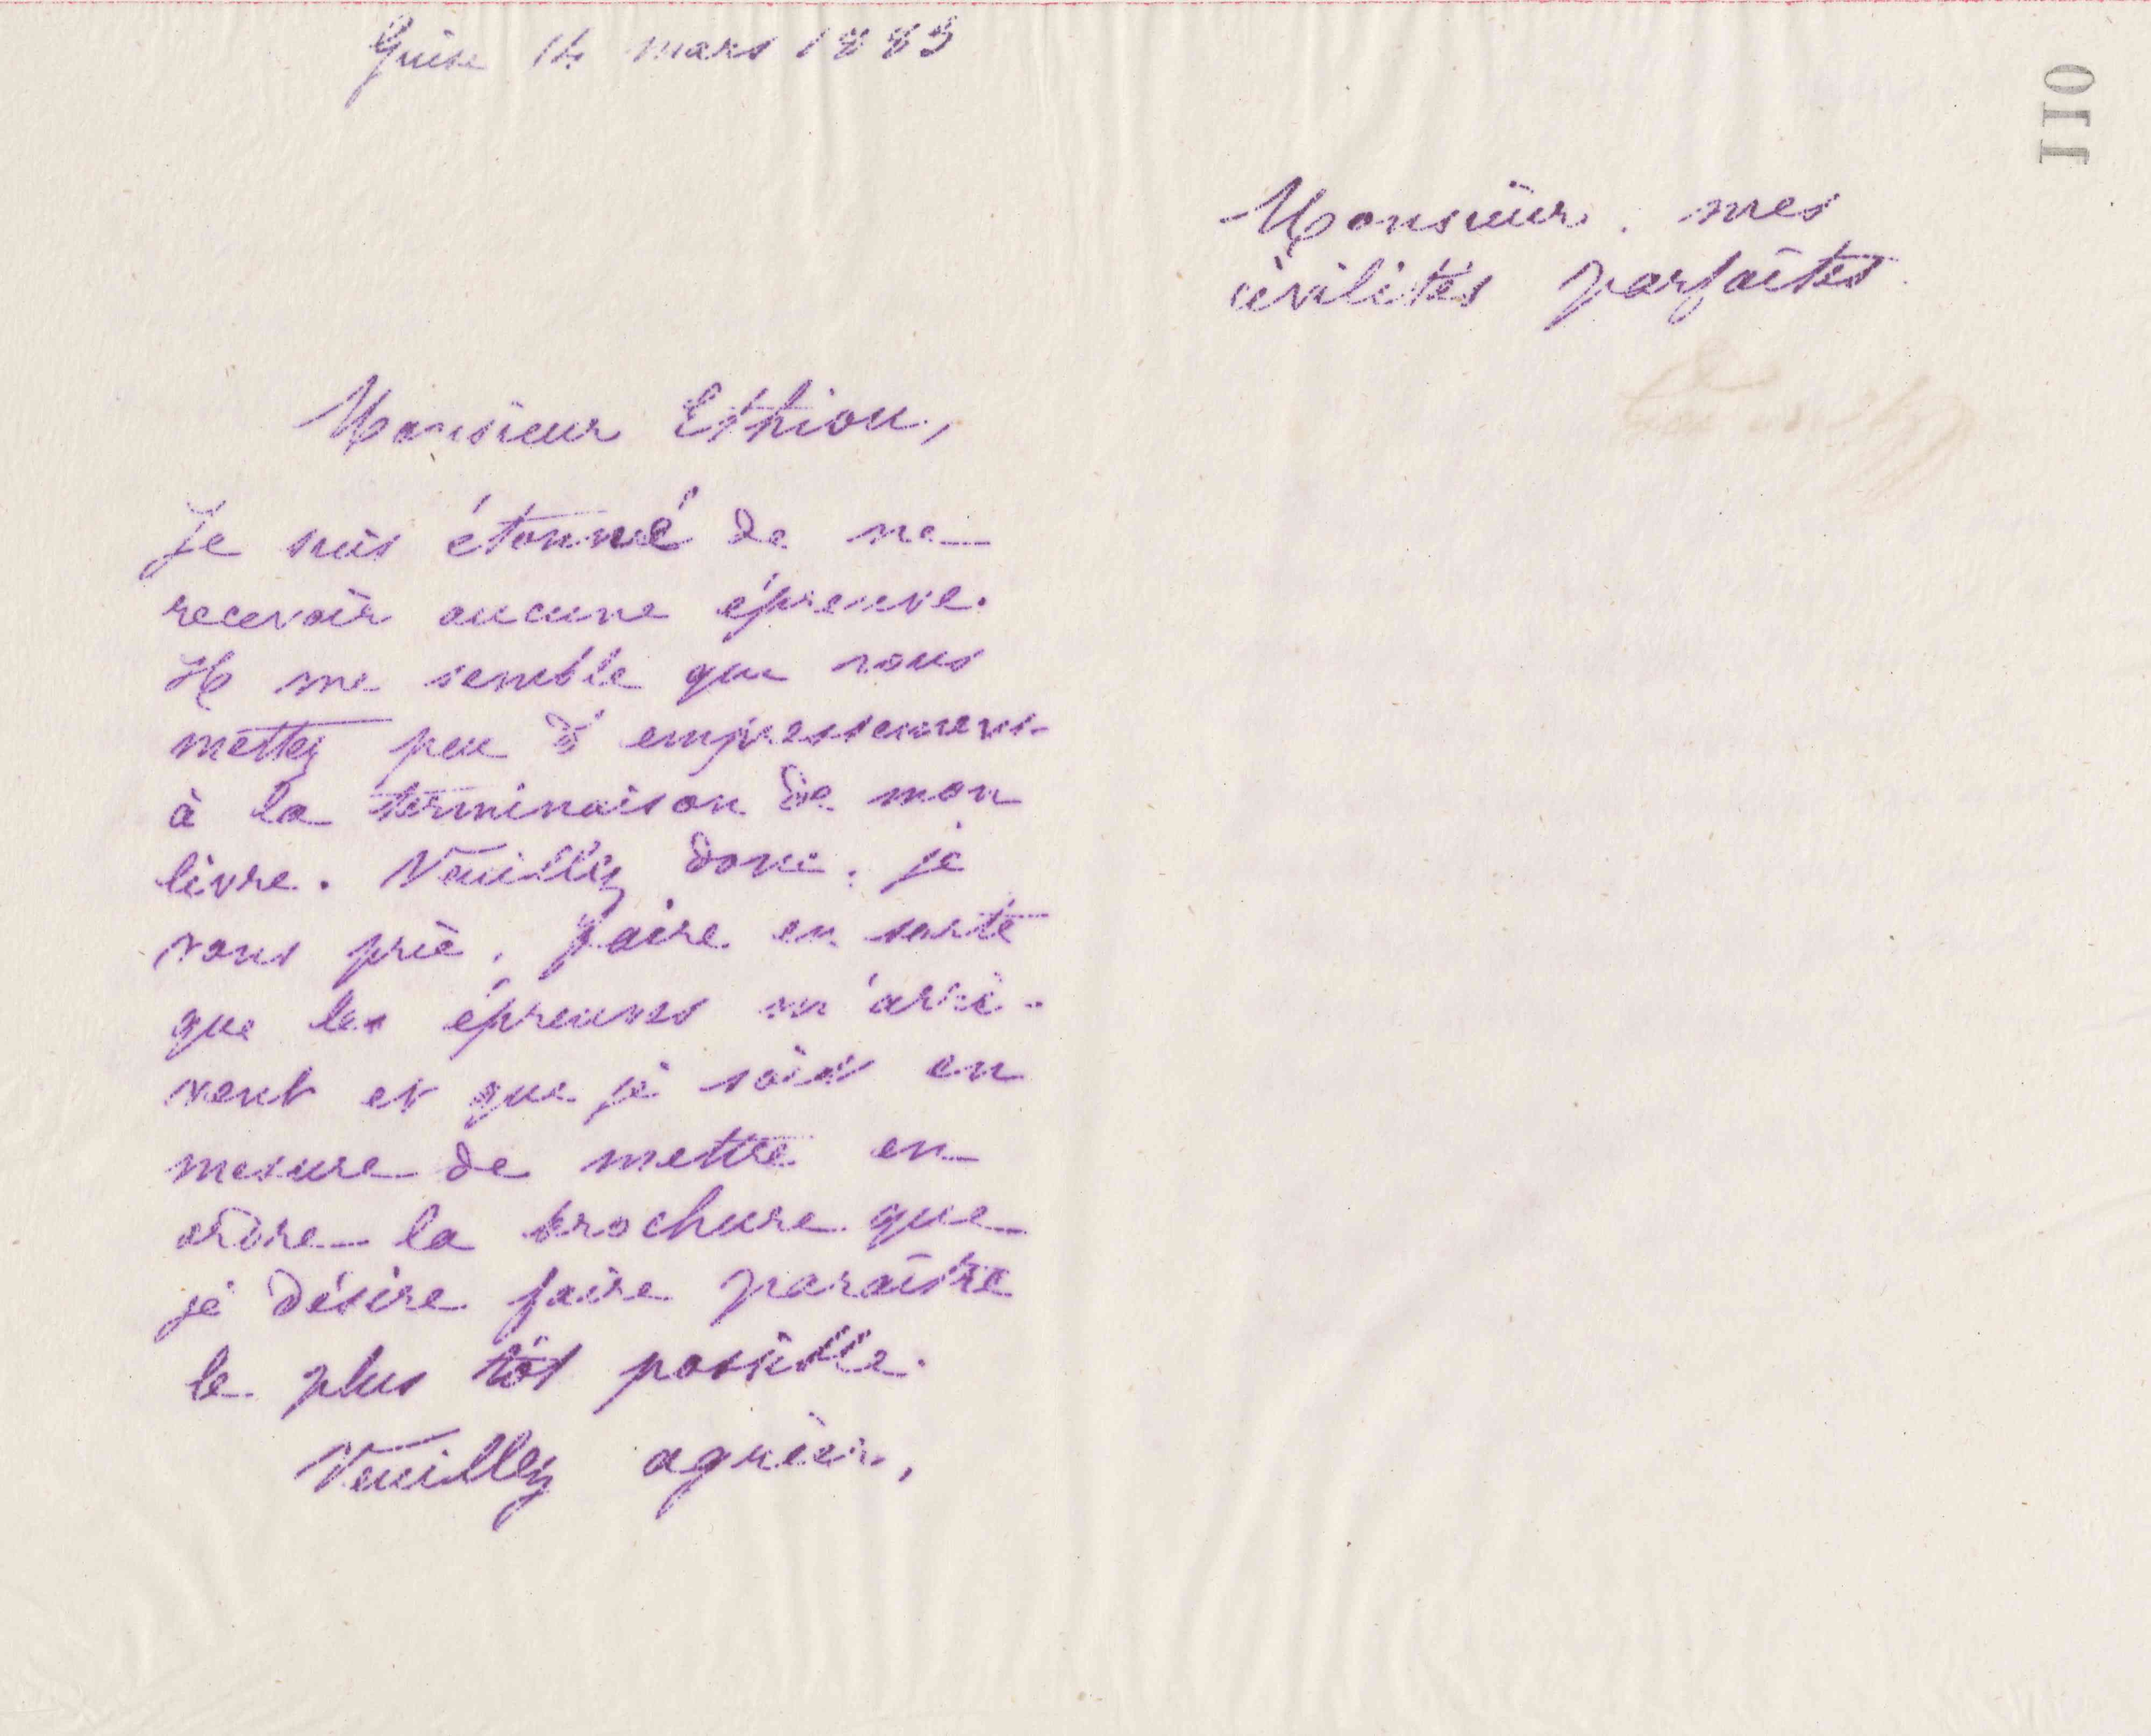 Guise 14 mars 1883
Monsieur Ethiou,
Je suis étonné de ne
recevoir aucune épreuve.
Il me semble que vous
mettez peu d'empressement
à la terminaison de mon
livre. Veuillez donc, je
vous prie, faire en sorte
que les épreuves m'arri-
vent et que je sois en
mesure de mettre en
ordre la brochure que
je désire faire paraître
le plus tôt possible.
Veuillez agréer,
Monsieur, mes
civilités parfaites
110